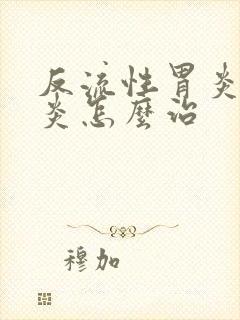 反流性胃炎
炎怎麼治
穆加